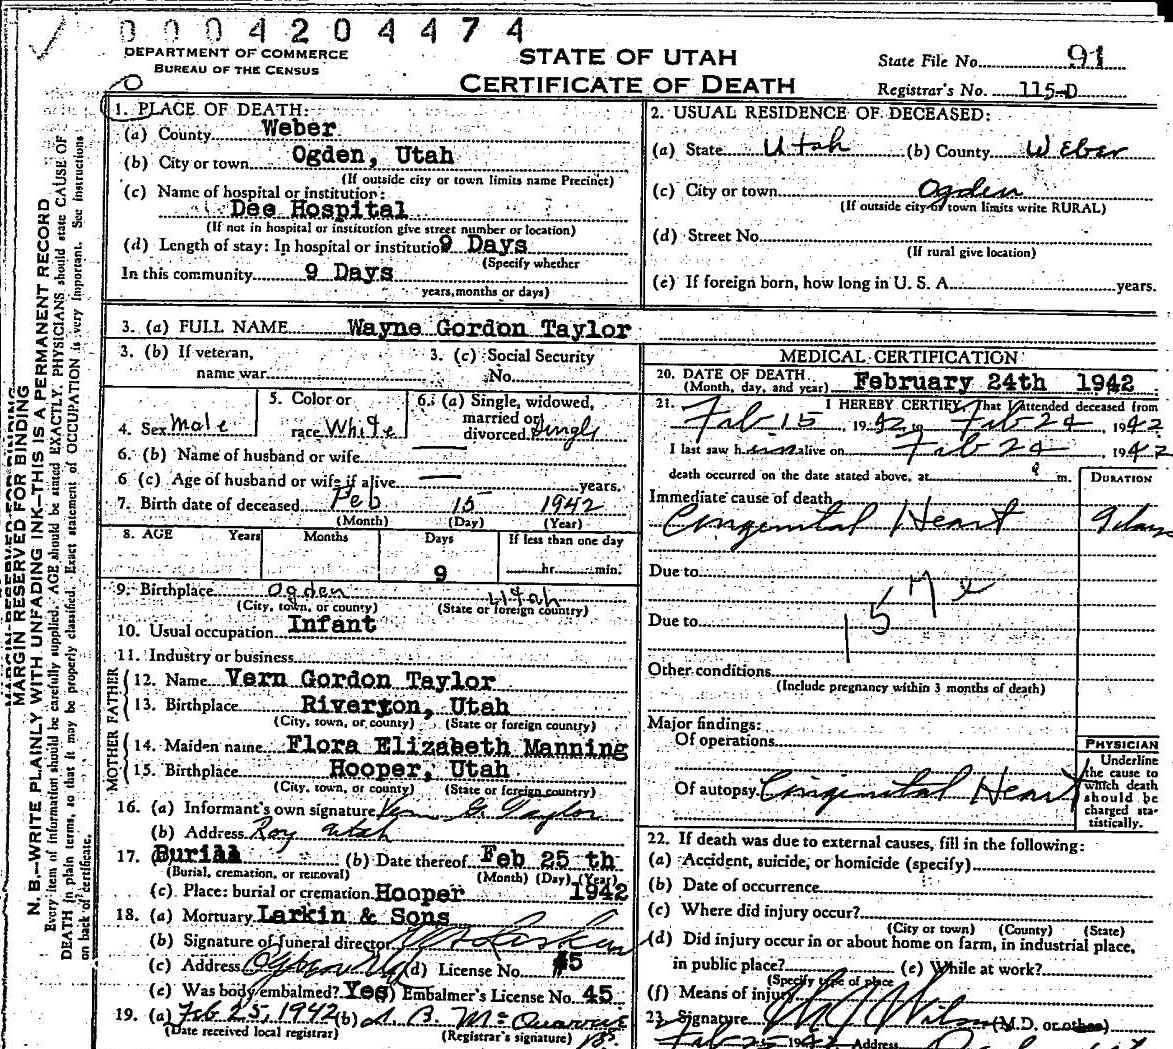 0 0 0 4 2 0 4 4 7 4
DEPARTMENT OF COMMERCE
BUREAU OF THE CENSUS
STATE OF UTAH
CERTIFICATE OF DEATH
State File No. 91
Registrar's No. 115-D
MARGIN RESERVED FOR BINDING
N. B.—WRITE PLAINLY WITH UNFADING INK—THIS IS A PERMANENT RECORD
Every item of information should be carefully supplied. AGE should be stated EXACTLY. PHYSICIANS should state CAUSE OF
DEATH in plain terms, so that it may be properly classified. Exact statement of OCCUPATION is very important. See instructions
on back of certificate.
1. PLACE OF DEATH:
(a) County Weber
(b) City or town Ogden, Utah
(If outside city or town limits name Precinct)
(c) Name of hospital or institution:
Dee Hospital
(If not in hospital or institution give street number or location)
(d) Length of stay: In hospital or institution 9 Days
(Specify whether
In this community 9 Days
years, months or days)
2. USUAL RESIDENCE OF DECEASED:
(a) State Utah (b) County Weber
(c) City or town Ogden
(If outside city or town limits write RURAL)
(d) Street No.
(If rural give location)
(e) If foreign born, how long in U. S. A. years.
3. (a) FULL NAME Wayne Gordon Taylor
3. (b) If veteran, name war
3. (c) Social Security No.
4. Sex Male
5. Color or race White
6. (a) Single, widowed, married or divorced Single
6. (b) Name of husband or wife
6 (c) Age of husband or wife if alive years.
7. Birth date of deceased Feb 15 1942
(Month) (Day) (Year)
8. AGE Years Months Days If less than one day
9 hr. min.
9. Birthplace Ogden Utah
(City, town, or county) (State or foreign country)
10. Usual occupation Infant
11. Industry or business
FATHER
12. Name Vern Gordon Taylor
13. Birthplace Riverton, Utah
(City, town, or county) (State or foreign country)
MOTHER
14. Maiden name Flora Elizabeth Manning
15. Birthplace Hooper, Utah
(City, town, or county) (State or foreign country)
16. (a) Informant's own signature Vern G. Taylor
(b) Address Roy Utah
17. (a) Burial (b) Date thereof Feb 25 th 1942
(Burial, cremation, or removal) (Month) (Day) (Year)
(c) Place: burial or cremation Hooper
18. (a) Mortuary Larkin & Sons
(b) Signature of funeral director Larkin
(c) Address (d) License No. #5
(e) Was body embalmed? Yes Embalmer's License No. 45
19. (a) Feb 25, 1942 (b)
(Date received local registrar) (Registrar's signature)
MEDICAL CERTIFICATION
20. DATE OF DEATH February 24th 1942
(Month, day, and year)
21. I HEREBY CERTIFY, That I attended deceased from
Feb 15, 1942 to Feb 24, 1942
I last saw him alive on Feb 24, 1942
death occurred on the date stated above, at m.
DURATION
Immediate cause of death
Congenital Heart 9 days
Due to
157 e
Due to
Other conditions
(Include pregnancy within 3 months of death)
Major findings:
Of operations
Of autopsy Congenital Heart
PHYSICIAN
Underline
the cause to
which death
should be
charged sta-
tistically.
22. If death was due to external causes, fill in the following:
(a) Accident, suicide, or homicide (specify)
(b) Date of occurrence
(c) Where did injury occur?
(City or town) (County) (State)
(d) Did injury occur in or about home on farm, in industrial place,
in public place? (e) While at work?
(Specify type of place
(f) Means of injury
23. Signature (M.D. or other)
Feb 25 1942 Address